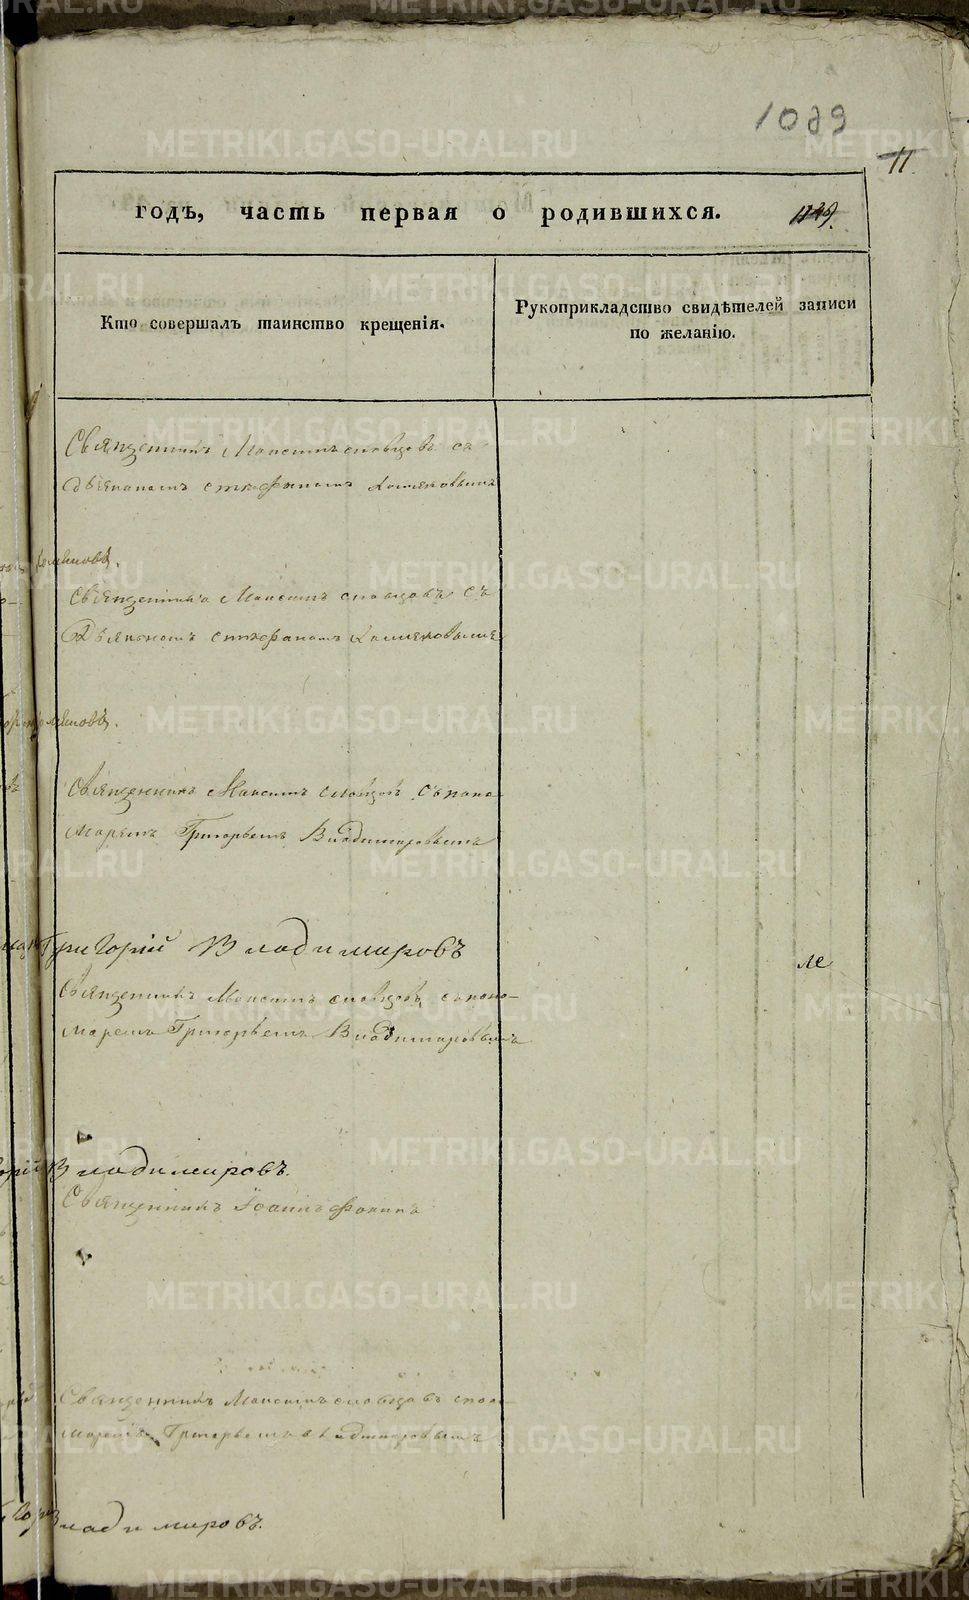 1089
11.
годъ, часть первая о родившихся. 1149.
Кто совершалъ таинство крещенія.
Рукоприкладство свидѣтелей записи
по желанію.
Священникъ Максимъ словцовъ съ
дьякономъ стефаномъ
Священникъ Максимъ словцовъ съ
Дьякономъ стефаномъ
Священникъ Максимъ словцовъ съ поно
маремъ Григорьемъ Владимировымъ
Григорій Владимировъ
Священникъ Максимъ словцовъ съ поно-
маремъ Григорьемъ Владимировымъ
Владимировъ.
Священникъ Іоаннъ Фокинъ
Священникъ Максимъ словцовъ споно-
маремъ Григорьемъ владимировымъ
Владимировъ.
METRIKI.GASO-URAL.RU